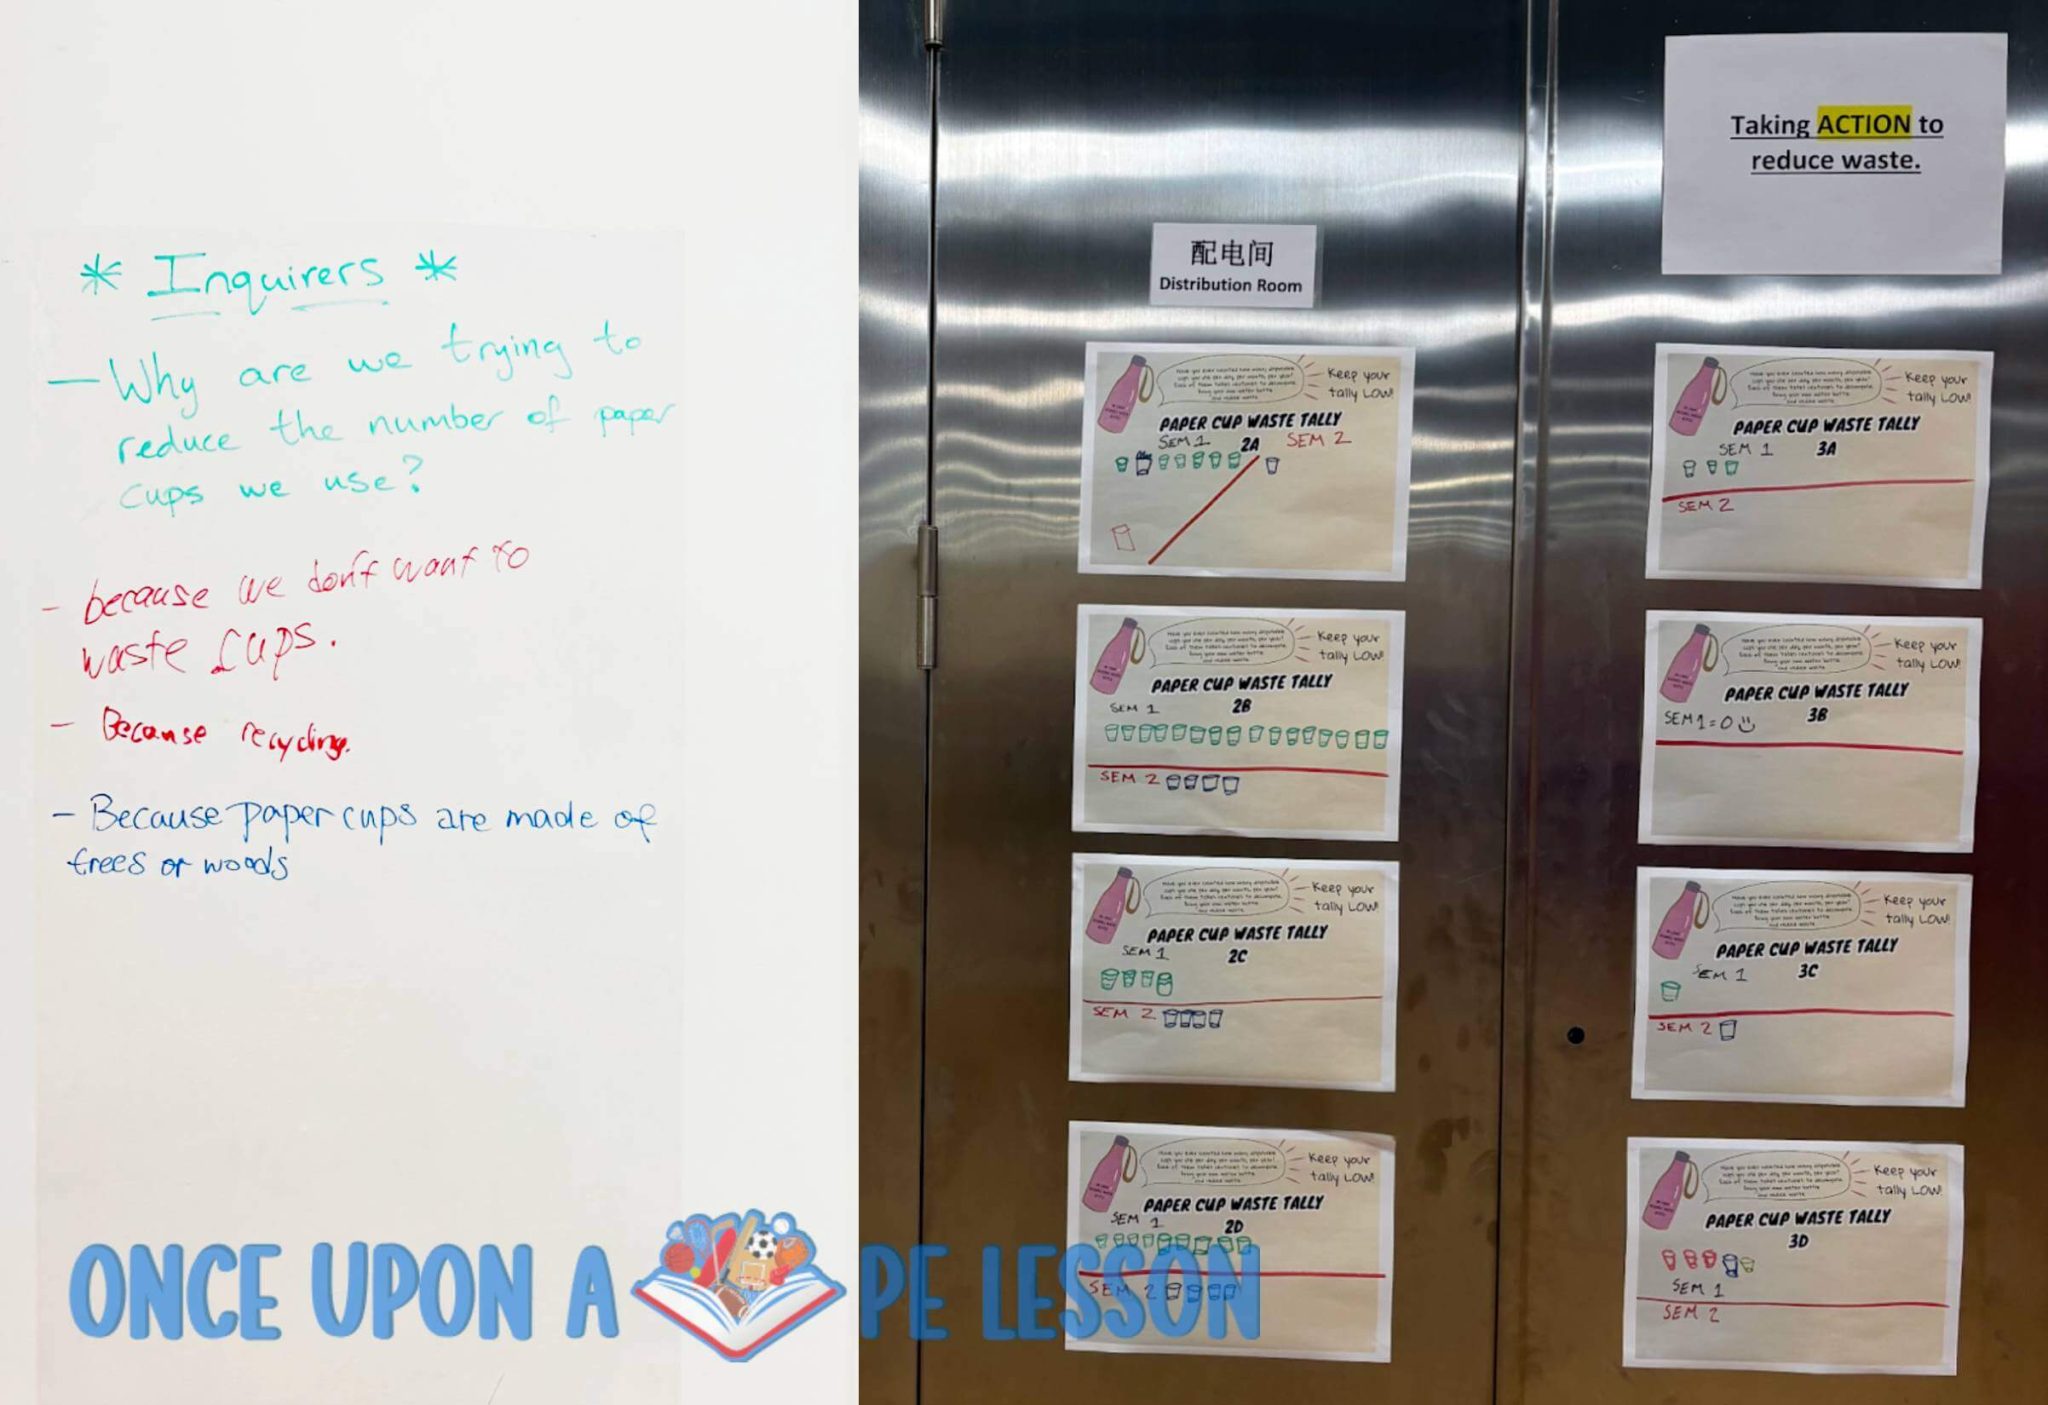 * Inquirers *
- Why are we trying to
reduce the number of paper
cups we use?
- because we don't want to
waste cups.
- Because recycling.
- Because paper cups are made of
trees or woods
配电间
Distribution Room
Taking ACTION to
reduce waste.
Keep your
tally LOW!
PAPER CUP WASTE TALLY
SEM 1 2A SEM 2
Keep your
tally LOW!
PAPER CUP WASTE TALLY
SEM 1 2B
SEM 2
Keep your
tally LOW!
PAPER CUP WASTE TALLY
SEM 1 2C
SEM 2
Keep your
tally LOW!
PAPER CUP WASTE TALLY
SEM 1 2D
SEM 2
Keep your
tally LOW!
PAPER CUP WASTE TALLY
SEM 1 3A
SEM 2
Keep your
tally LOW!
PAPER CUP WASTE TALLY
3B
SEM 1 = 0
Keep your
tally LOW!
PAPER CUP WASTE TALLY
SEM 1 3C
SEM 2
Keep your
tally LOW!
PAPER CUP WASTE TALLY
3D
SEM 1
SEM 2
ONCE UPON A PE LESSON